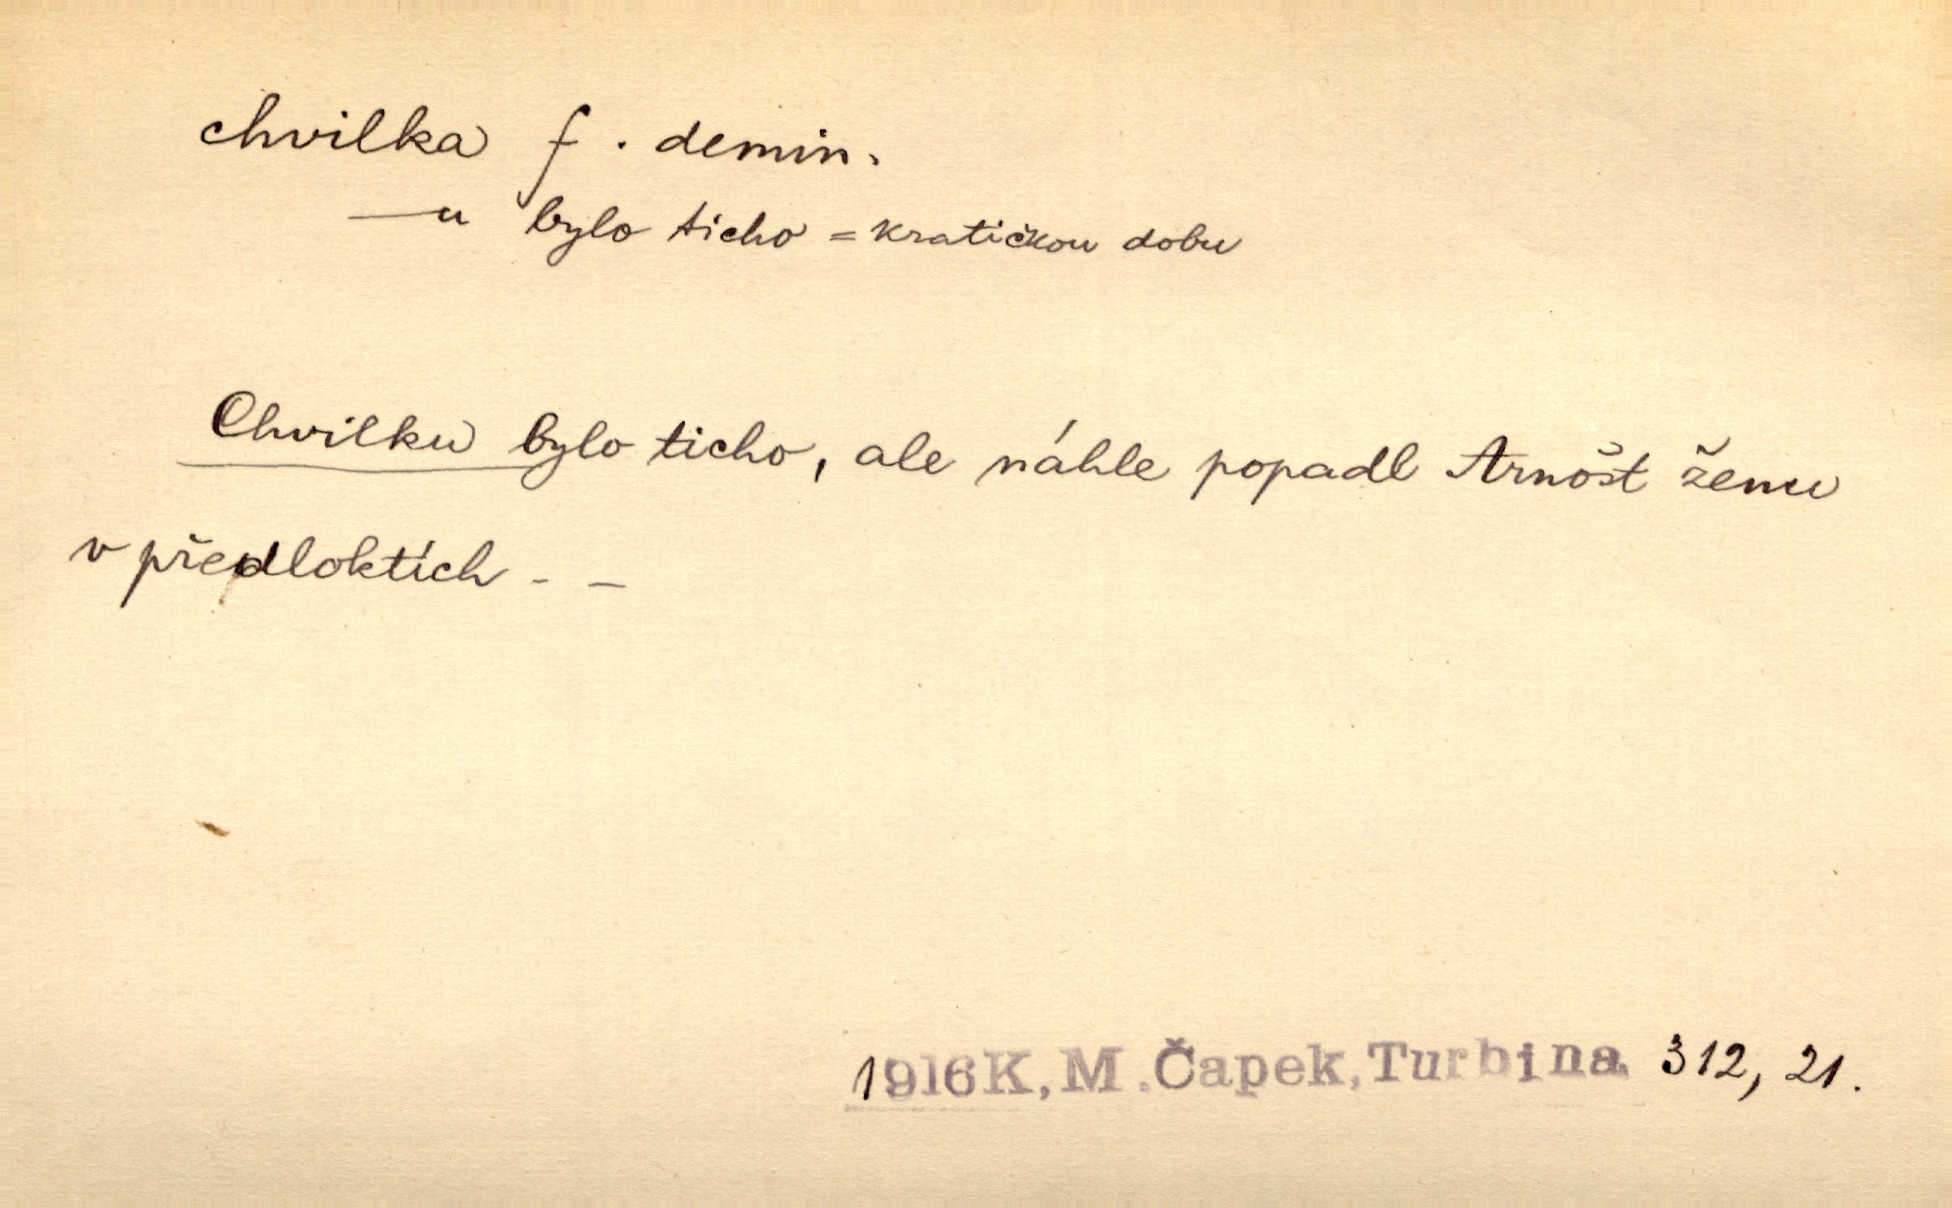 chvilka f. demin.
—u bylo ticho = kratičkou dobu
Chvilku bylo ticho, ale náhle popadl Arnošt ženu
v předloktích - -
1916 K, M. Čapek, Turbina 312, 21.